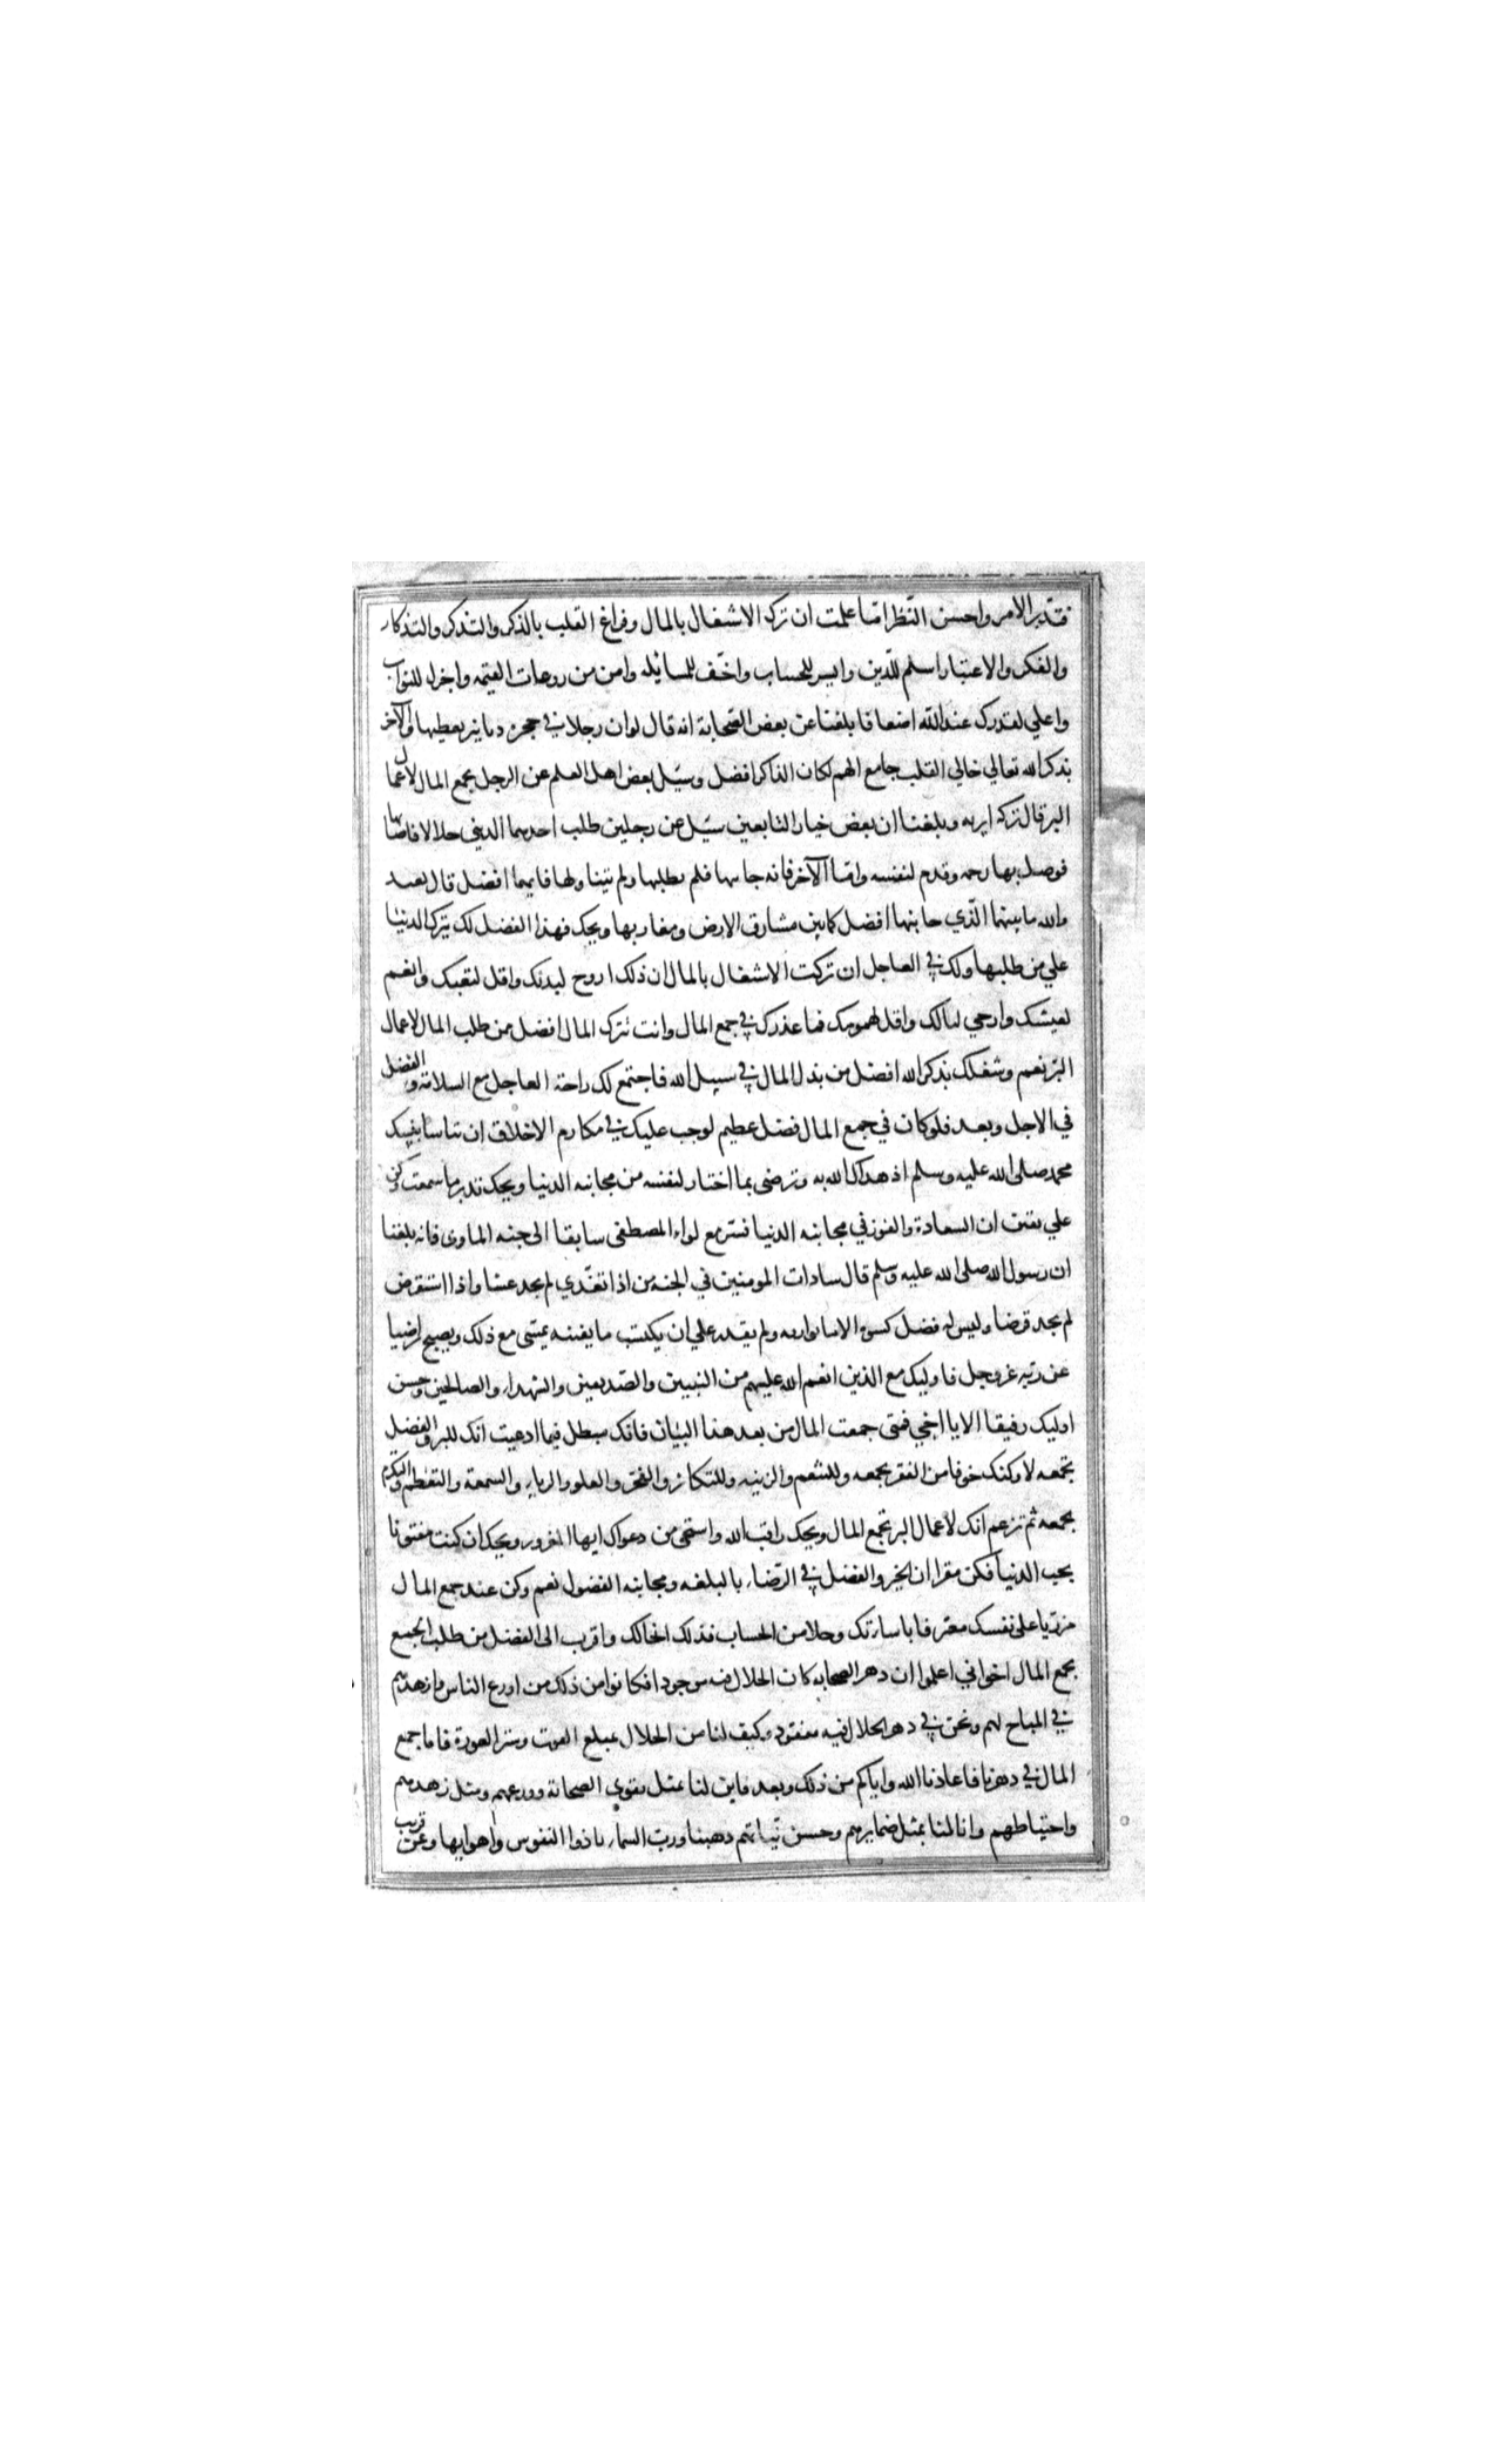 فتدبر الامر واحسن النظر اما علمت ان ترك الاشتغال بالمال وفراغ القلب بالذكر والتذكر والتذكار
والفكر والاعتبار اسلم للدين وايسر للحساب واخف للمسايله وامن من روعات القيمه واجزل للثواب
واعلي لقدرك عند الله اضعافا بلغنا عن بعض الصحابة انه قال لو ان رجلا في حجره دنانير يعطيها والآخر
يذكر الله تعالي خالي القلب جامع الهم لكان الذاكر افضل وسئل بعض اهل العلم عن الرجل يجمع المال لاعمال
البر قال تركه ابر به وبلغنا ان بعض خيار التابعين سئل عن رجلين طلب احدهما الدنيي حلالا فاصابها
فوصل بها رحمه وقدم لنفسه واما الآخر فانه جانبها فلم يطلبها ولم يتناولها فايهما افضل قال بعيد
والله ما بينهما الذي جانبها افضل كما بين مشارق الارض ومغاربها ويحك فهذا الفضل لك بترك الدنيا
علي من طلبها ولك في العاجل ان تركت الاشتغال بالمال ان ذلك اروح لبدنك واقل لتعبك وانعم
لعيشك وارخي لبالك واقل لهمومك فما عذرك في جمع المال وانت بترك المال افضل من طلب المال لاعمال
البر نعم وشغلك بذكر الله افضل من بذل المال في سبيل الله فاجتمع لك راحة العاجل مع السلامة والفضل
في الاجل وبعد فلو كان في جمع المال فضل عظيم لوجب عليك في مكارم الاخلاق ان تتاسا بنبيك
محمد صلى الله عليه وسلم اذ هداك الله به وترضى بما اختار لنفسه من مجانبه الدنيا ويحك تدبر ما سمعت وكن
علي يقين ان السعادة والفوز في مجانبه الدنيا فسر مع لواء المصطفى سابقا الى جنه الماوى فانه بلغنا
ان رسول الله صلى الله عليه وسلم قال سادات المومنين في الجنه من اذا تغدي لم يجد عشا واذا استقرض
لم يجد قرضا وليس له فضل كسوة الا ما يواريه ولم يقدر علي ان يكتسب ما يغنيه يمسى مع ذلك ويصبح راضيا
عن ربه عزوجل فاوليك مع الذين انعم الله عليهم من النبيين والصديقين والشهداء والصالحين وحسن
اوليك رفيقا الا يا اخي فمتى جمعت المال من بعد هذا البيان فانك مبطل فيما ادعيت انك للبر والفضل
تجمعه لا ولكنك خوفا من الفقر تجمعه وللتنعم والزينه وللتكاثر والفخر والعلو والرياء والسمعة والتعظم والتكرم
تجمعه ثم تزعم انك لاعمال البر تجمع المال ويحك راقب الله واستحى من دعواك ايها المغرور ويحك ان كنت مفتونا
بحب الدنيا فكن مقرا ان الخير والفضل في الرضاء بالبلغه ومجانبه الفضول نعم وكن عند جمع المال
مزريا على نفسك معترفا باساءتك وجلا من الحساب فذلك انجا لك واقرب الى الفضل من طلب الحجج
بجمع المال اخواني اعلموا ان دهر الصحابه كان الحلال فيه موجودا فكانوا من ذلك من اورع الناس وازهدهم
في المباح لهم ونحن في دهر الحلال فيه مفقود وكيف لنا من الحلال بمبلغ القوت وستر العورة فاما جمع
المال في دهرنا فاعاذنا الله واياكم من ذلك وبعد فاين لنا بمثل تقوي الصحابة وورعهم ومثل زهدهم
واحتياطهم وانا لنا بمثل ضمايرهم وحسن نياتهم دهينا ورب السماء باذواء النفوس واهوايها وعن قريب